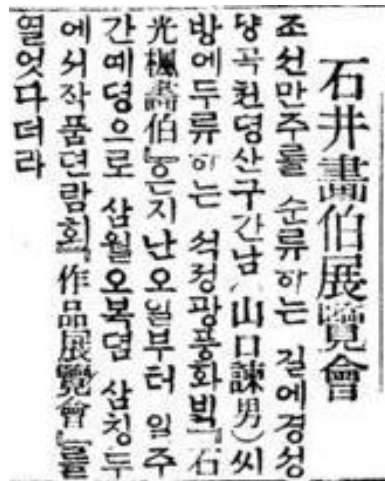 石井畵伯展覽會
조선만주를 순류하는 길에경성
냥곡천뎡산구간남(山口諫男)씨
방에두류하는 석정광풍화빅『石
光楓畵伯』은지난오일부터 일주
간예뎡으로 삼월오복뎜 삼칭두
에서작품뎐람회『作品展覽會』를
열엇다더라